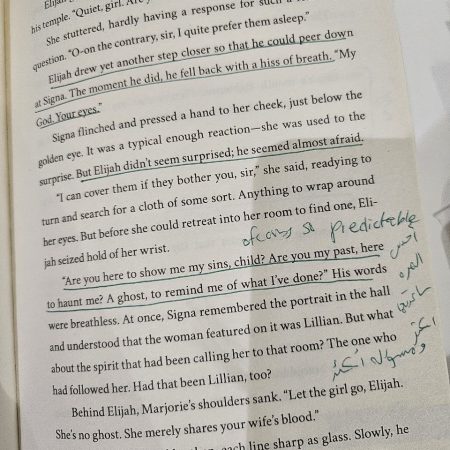 his temple. "Quiet, girl. Are
She stuttered, hardly having a response for such a
question. "O-on the contrary, sir, I quite prefer them asleep."
Elijah drew yet another step closer so that he could peer down
at Signa. The moment he did, he fell back with a hiss of breath. "My
God. Your eyes."
Signa flinched and pressed a hand to her cheek, just below the
golden eye. It was a typical enough reaction—she was used to the
surprise. But Elijah didn't seem surprised; he seemed almost afraid.
"I can cover them if they bother you, sir," she said, readying to
turn and search for a cloth of some sort. Anything to wrap around
her eyes. But before she could retreat into her room to find one, Eli-
jah seized hold of her wrist.
so predictable
"Are you here to show me my sins, child? Are you my past, here
to haunt me? A ghost, to remind me of what I've done?" His words
were breathless. At once, Signa remembered the portrait in the hall
and understood that the woman featured on it was Lillian. But what
about the spirit that had been calling her to that room? The one who
had followed her. Had that been Lillian, too?
Behind Elijah, Marjorie's shoulders sank. "Let the girl go, Elijah.
She's no ghost. She merely shares your wife's blood."
each line sharp as glass. Slowly, he